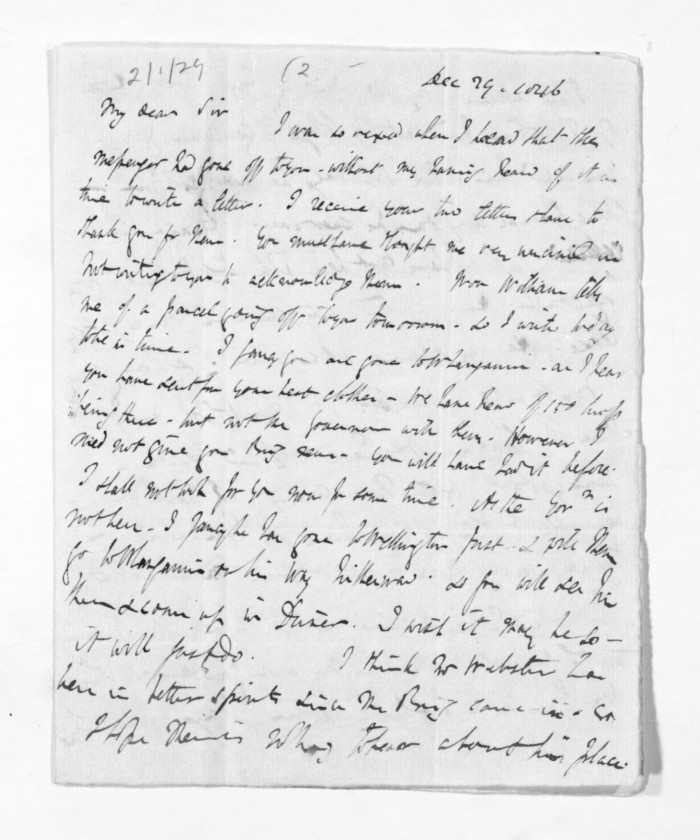 2/1/29 (2 -
Dec 29 - 1846
My dear Sir
I was so vexed when I heard that the
messenger had gone off to you - without my having heard of it in
time to write a letter. I receive your two letters & have to
thank you for them. You must have thought me very uncivil in
not writing to you to acknowledge them. William tells
me of a parcel going off to you tomorrow - so I write today
to be in time. I fancy you are gone to Wanganui - as I hear
you have sent for your best clothes - We have heard of 150 troops
being there - but not the Governor with them. However I
need not give you news - you will have had it before.
I shall not look for you now for some time. As the Govr is
not here - I fancy he has gone to Wellington first - & will then
go to Wanganui on his way hitherward. & you will see him
there & come up in Driver. I wish it may be so -
it will just do. I think Mr Webster has
been in better spirits since the Brig came in - so
I hope there is nothing to hear about his place.